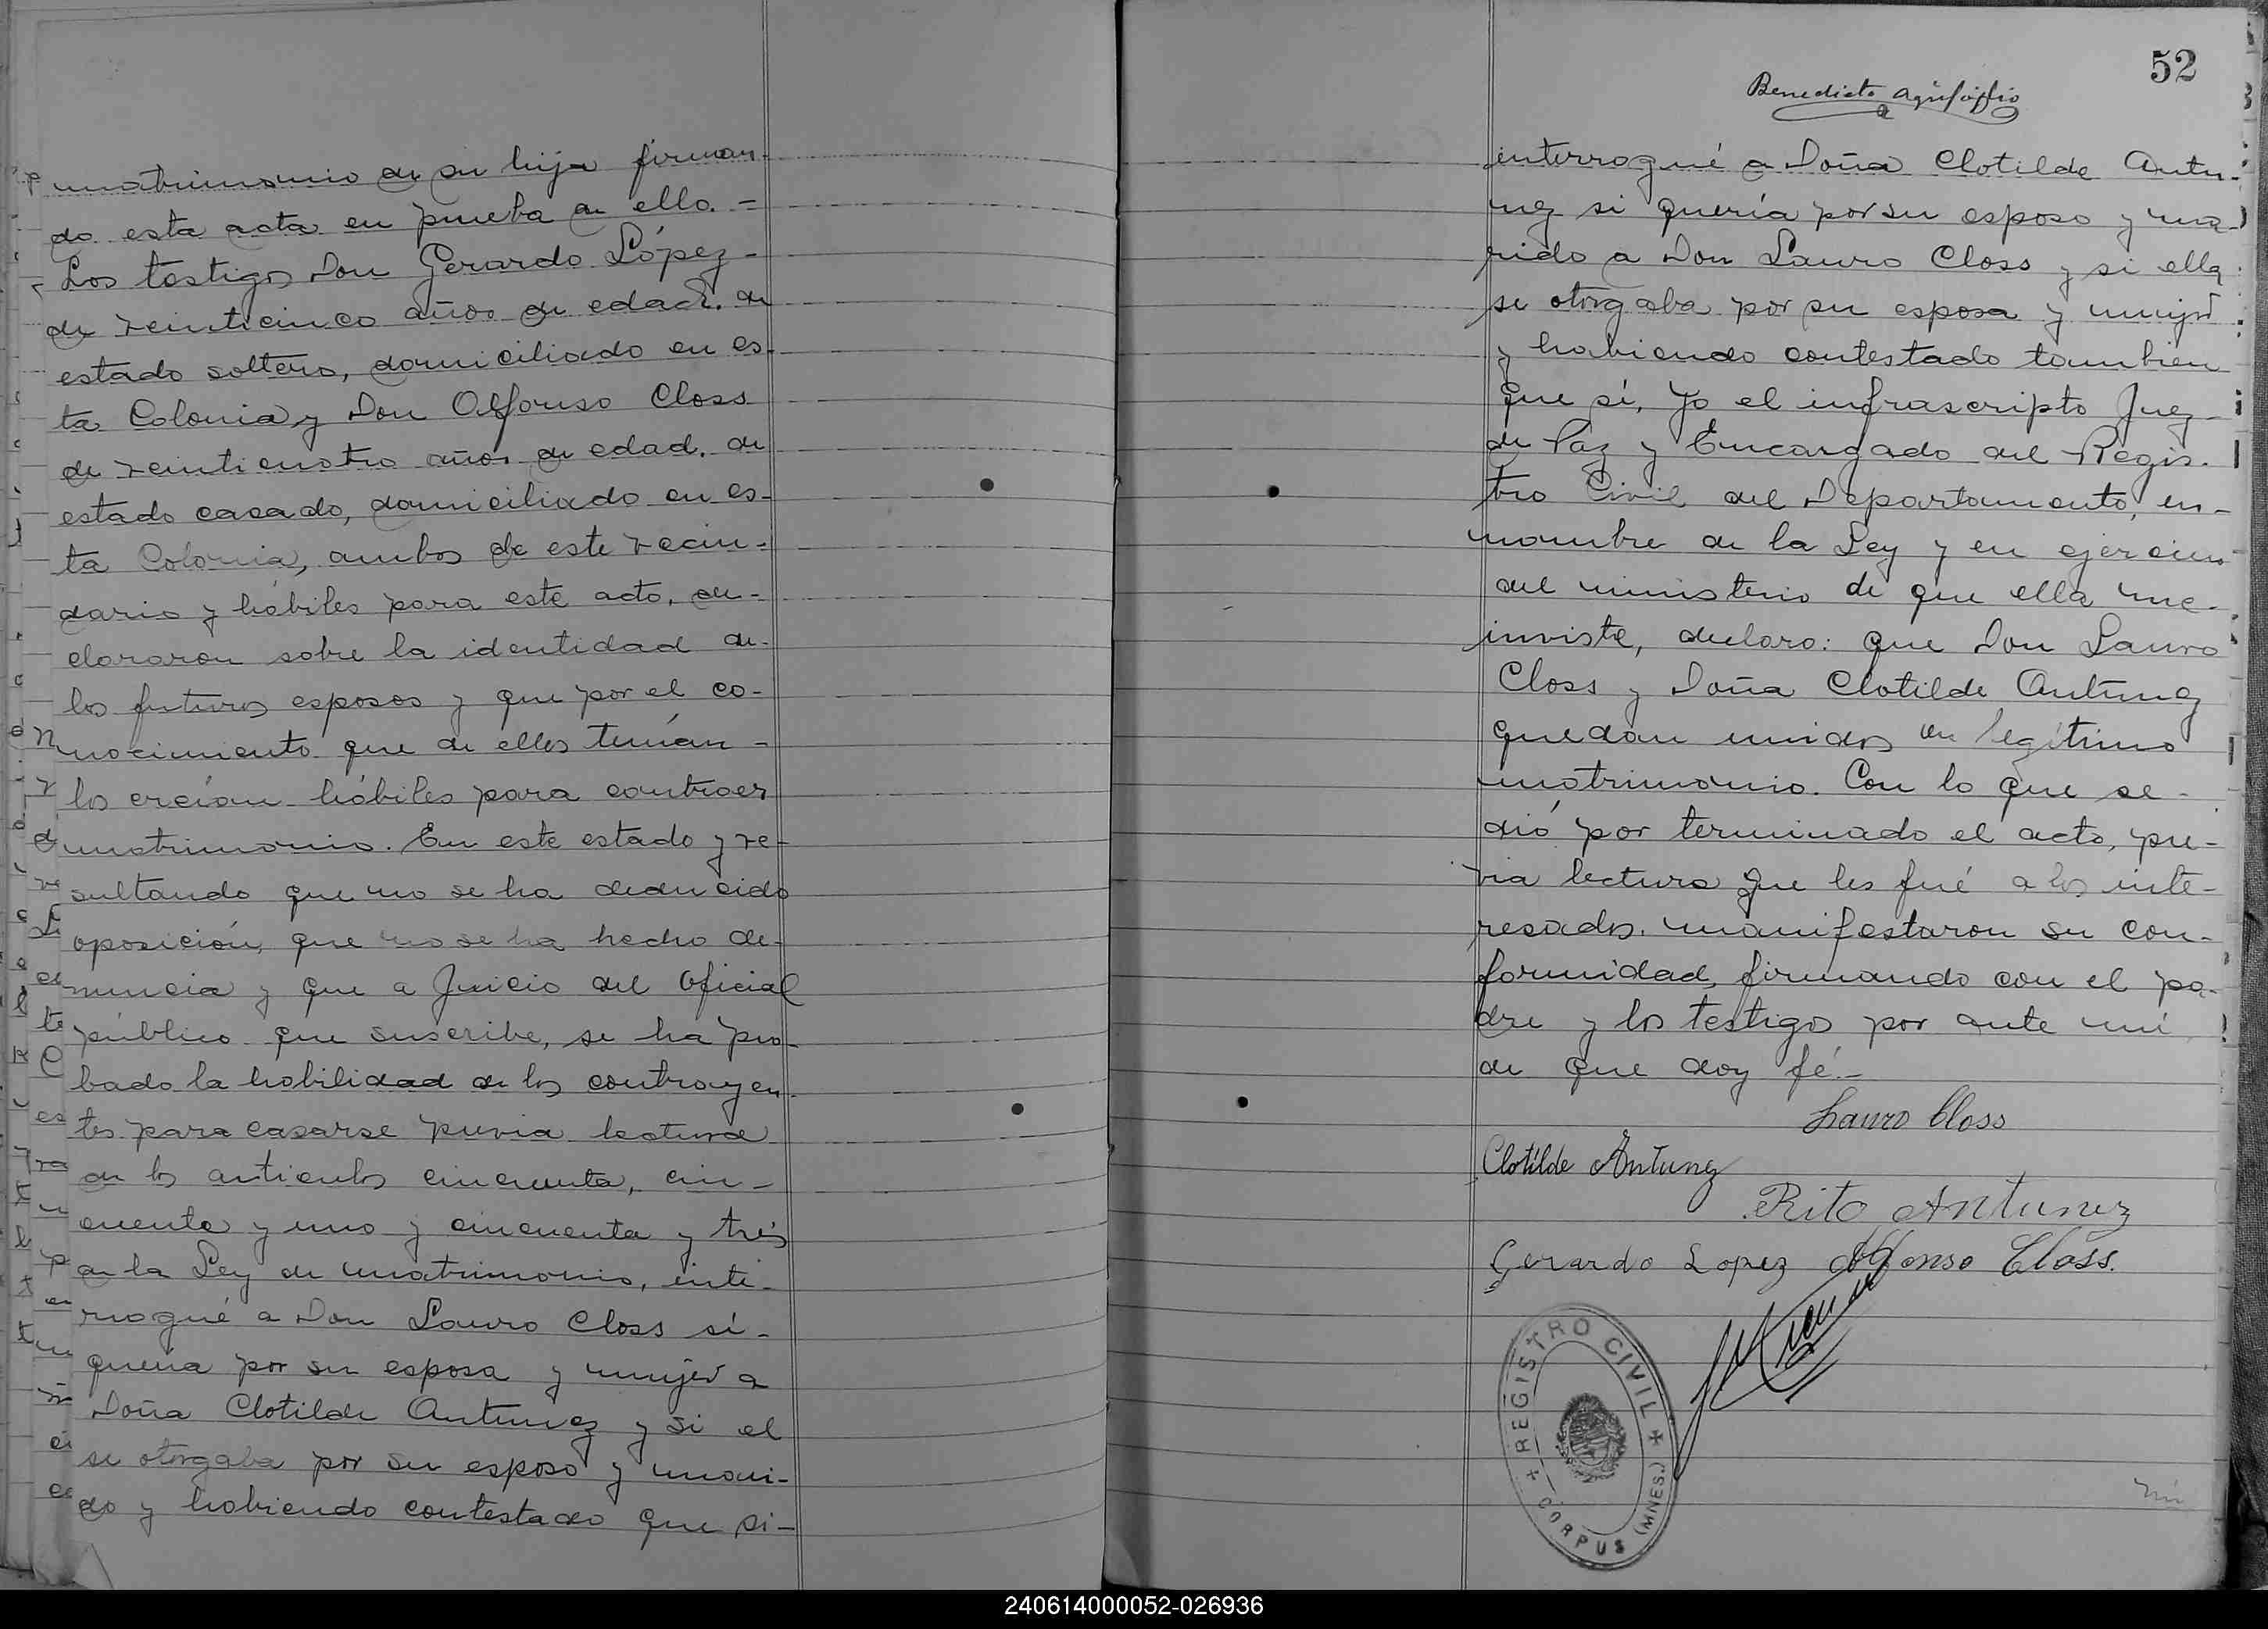 matrimonio de su hija firman-
do esta acta en prueba de ello.=
Los testigos Don Gerardo López-
de veinticinco años de edad. de
estado soltero, domiciliado en es-
ta Colonia y Don Alfonso Closs
de veinticuatro años de edad. de
estado casado, domiciliado en es-
ta Colonia, ambos de este vecin-
dario y hábiles para este acto, de-
clararon sobre la identidad de
los futuros esposos y que por el co-
nocimiento que de ellos tenían-
los creían hábiles para contraer
matrimonio. En este estado y re-
sultando que no se ha deducido
oposición, que no se ha hecho de-
nuncia y que a Juicio del Oficial
público que suscribe, se ha pro-
bado la habilidad de los contrayen-
tes para casarse previa lectura
de los articulos cincuenta, cin-
cuenta y uno y cincuenta y trés
de la Ley de matrimonio, inte-
rrogué a Don Lauro Closs si-
quería por su esposa y mujer a
Doña Clotilde Antunez y si el
se otorgaba por su esposo y mari-
do y habiendo contestado que si-
52
Benedicto
interrogué a Doña Clotilde Antu-
nez si quería por su esposo y ma-
rido a Don Lauro Closs y si ella
se otorgaba por su esposa y mujer
y habiendo contestado tambien
que sí, Yo el infrascripto Juez-
de Paz y Encargado del Regis-
tro Civil del Departamento, en-
nombre de la Ley y en ejercicio
del ministerio de que ella me-
inviste, declaro: que Don Lauro
Closs y Doña Clotilde Antunez
quedan unidos en legítimo
matrimonio. Con lo que se-
dió por terminado el acto, pre-
via lectura que les fué a los inte-
resados. manifestaron su con-
formidad, firmando con el pa-
dre y los testigos por ante mí
de que doy fé.-
Lauro Closs
Clotilde Antunez
Rito Antunez
Gerardo Lopez Alfonso Closs.
REGISTRO CIVIL
CORPUS (MNES.)
240614000052-026936